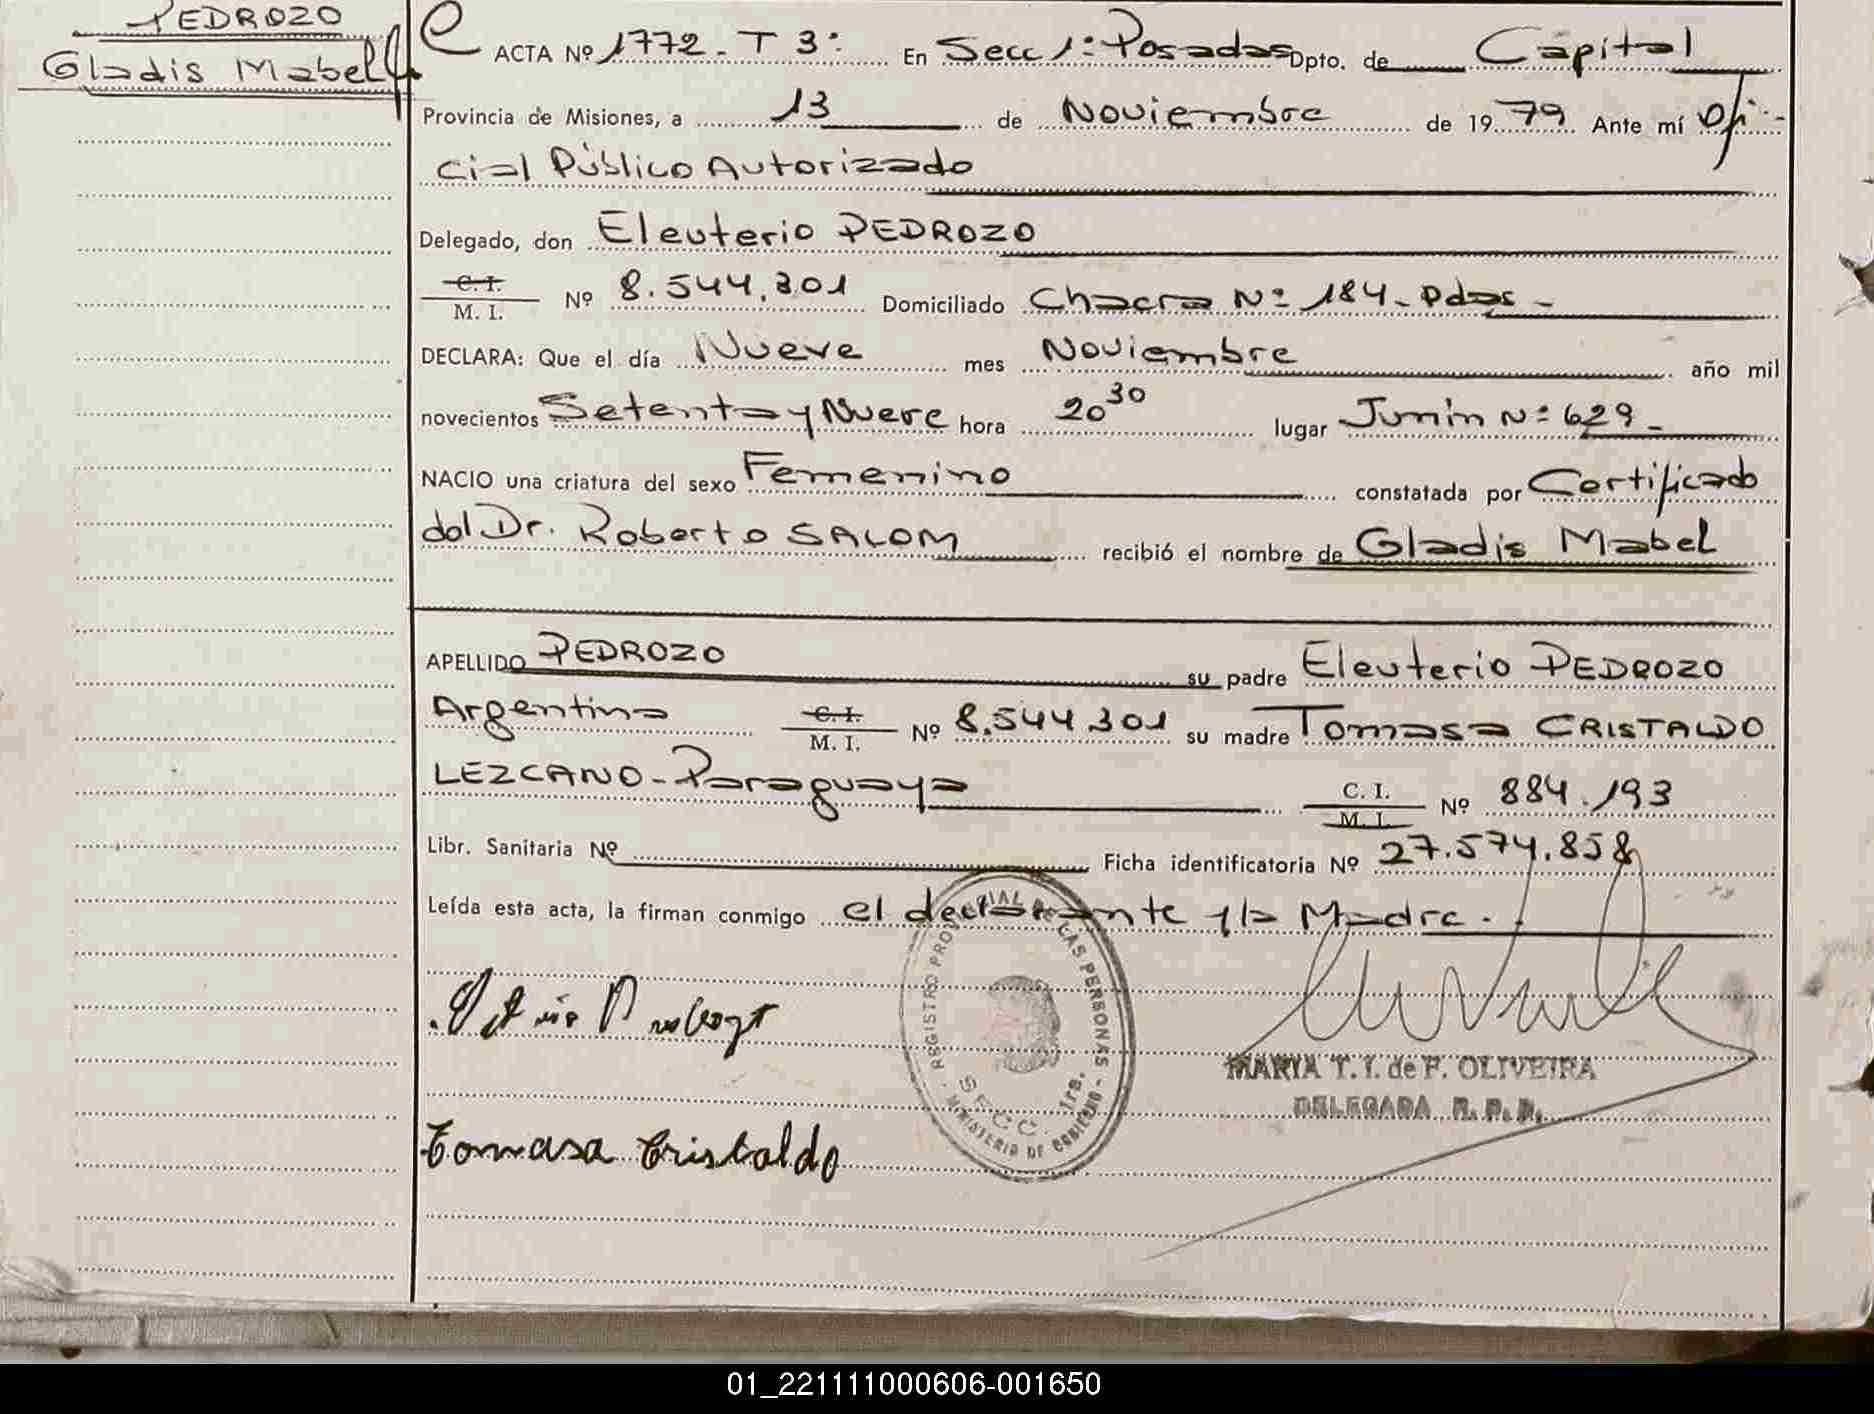 PEDROZO
Gladis Mabel
ACTA Nº 1772 - T 3º En Secc 1º Posadas Dpto. de Capital
Provincia de Misiones, a 13 de Noviembre de 1979 Ante mí Ofi-
cial Público Autorizado
Delegado, don Eleuterio PEDROZO
C. I.
M. I. Nº 8.544.301 Domiciliado Chacra Nº 184 - Pdas -
DECLARA: Que el día Nueve mes Noviembre año mil
novecientos Setenta y Nueve hora 20 30 lugar Junin Nº 629 -
NACIO una criatura del sexo Femenino constatada por Certificado
del Dr. Roberto SALOM recibió el nombre de Gladis Mabel
APELLIDO PEDROZO su padre Eleuterio PEDROZO
Argentino C. I.
M. I. Nº 8.544.301 su madre Tomasa CRISTALDO
LEZCANO - Paraguaya C. I.
M. I. Nº 884.193
Libr. Sanitaria Nº Ficha identificatoria Nº 27.574.858
Leída esta acta, la firman conmigo el declarante y la Madre.
REGISTRO PROVINCIAL DE LAS PERSONAS - MINISTERIO DE GOBIERNO -
SECC. 1ra.
MARIA T. I. de F. OLIVEIRA
DELEGADA R. P. P.
Tomasa Cristaldo
01_221111000606-001650